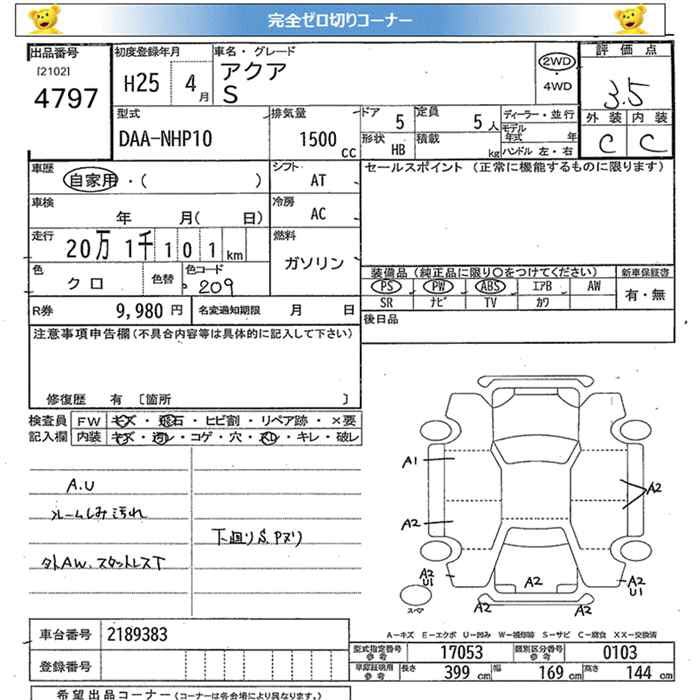 完全ゼロ切りコーナー
出品番号
[2102]
4797
初度登録年月
H25 4月
車名・グレード
アクア
S
2WD
・
4WD
評価点
3.5
外装 内装
C C
型式
DAA-NHP10
排気量
1500 CC
ドア 5
定員 5人
形状 HB
積載 kg
ディーラー・並行
モデル年式 年
ハンドル 左・右
車歴
自家用・( )
シフト
AT
セールスポイント (正常に機能するものに限ります)
車検
年 月( 日)
冷房
AC
走行
20万 1千 1 0 1 km
燃料
ガソリン
色
クロ
色替
色コード
209
装備品(純正品に限り○をつけてください)
新車保証書
PS PW ABS エアB AW
有・無
SR ナビ TV カワ
R券 9,980円
名変通知期限 月 日
後日品
注意事項申告欄(不具合内容等は具体的に記入して下さい)
修復歴 有 [箇所 ]
検査員
記入欄
FW キズ・飛石・ヒビ割・リペア跡・×要
内装 キズ・汚レ・コゲ・穴・スレ・キレ・破レ
A.U
汚れ
下廻りS.Pヌリ
外AW.スタットレスT
A1
A2
A2
A2
U1
A2
A2
A2
A2
U1
スペア
A-キズ E-エクボ U-凹み W-補修跡 S-サビ C-腐食 XX-交換済
車台番号 2189383
登録番号
型式指定番号
参考
17053
類別区分番号
参考
0103
車庫証明用
参考
長さ 399 cm
幅 169 cm
高さ 144 cm
希望出品コーナー(コーナーは各会場により異なります。)